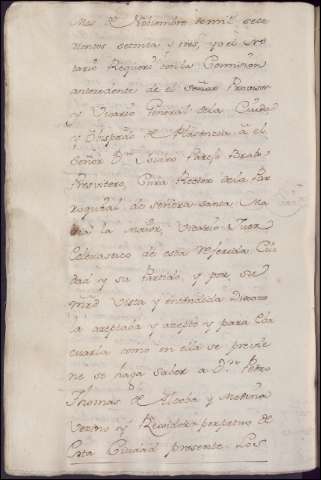 Mes de Noviembre de mil sete
cientos setenta y tres, yo el Se
tario Requeri con la Comission
antecedente de el Señor Provisor
y Vicario General de la Ciudad
y Obispado de Plasencia a el
Señor Dn. Isidro Parejo Brabo
Presvitero, Cura Rector de la Par
roquial de señora santa Ma
ria la maior, Vicario Juez
Eclesiastico de esta referida Ciu
dad y su partido, y por su
mrd vista y entendida Dixo
la azeptaba y azepto y para
como en ella se previe
ne se haga saber a Dn. Pedro
Thomas de y Medina
Vezino y Rexidor perpetuo de
esta Ciudad presente los